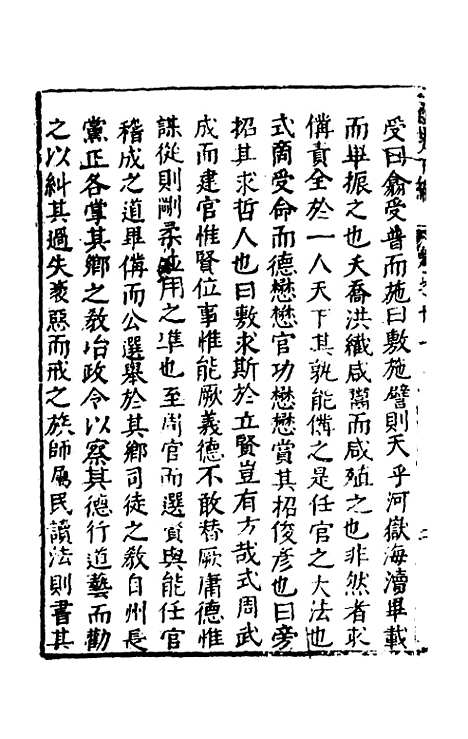 受曰翕受普而施曰敷施譬則天乎河嶽海瀆畢載
而畢振之也夭喬洪纖咸鬻而咸殖之也非然者求
備責全於一人天下其孰能備之是任官之大法也
式商受命而德懋懋官功懋懋賞其招俊彥也曰旁
招其求哲人也曰敷求斯於立賢豈有方哉式周武
成而建官惟賢位事惟能厥義德不敢替厥庸德惟
謀從則剛柔並用之準也至周官而選賢與能任官
稽成之道畢備而公選舉於其鄉司徒之教自州長
黨正各掌其鄉之教治政令以察其德行道藝而勸
之以糾其過失衺惡而戒之族師屬民讀法則書其